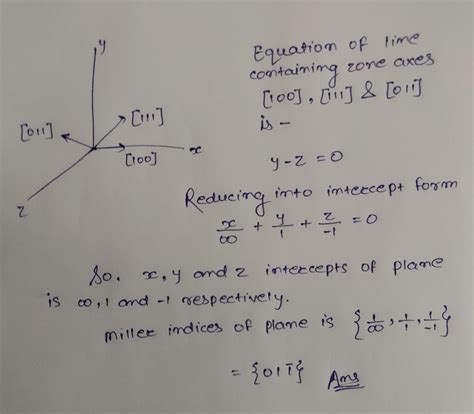 y
[011]
[111]
[100]
x
z
Equation of line
containing zone axes
[100], [111] & [011]
is -
y-z=0
Reducing into intercept form
x/∞ + y/1 + z/-1 = 0
So, x, y and z intercepts of plane
is ∞, 1 and -1 respectively.
miller indices of plane is {1/∞, 1/1, 1/-1}
= {011̄} Ans